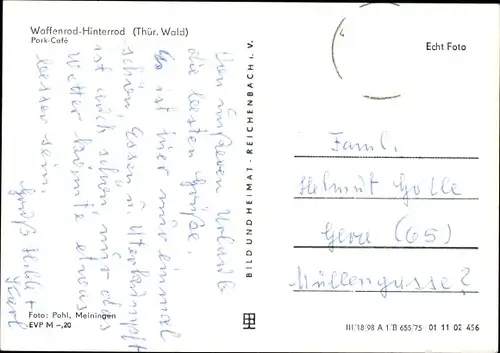 Waffenrod-Hinterrod (Thür. Wald)
Park-Café
Von unserem Urlaub
die besten Grüße.
Es ist hier nun einmal
schön, Essen u. Unterkunft
ist auch schön, nur das
Wetter könnte etwas
besser sein.
Grüß Hilde +
Foto: Pohl, Meiningen
EVP M –,20
BILD UND HEIMAT · REICHENBACH i. V.
Echt Foto
Faml.
Helmut Golle
Gera (65)
Müllengasse 7
III/18/98 A 1/B 655/75 01 11 02 456